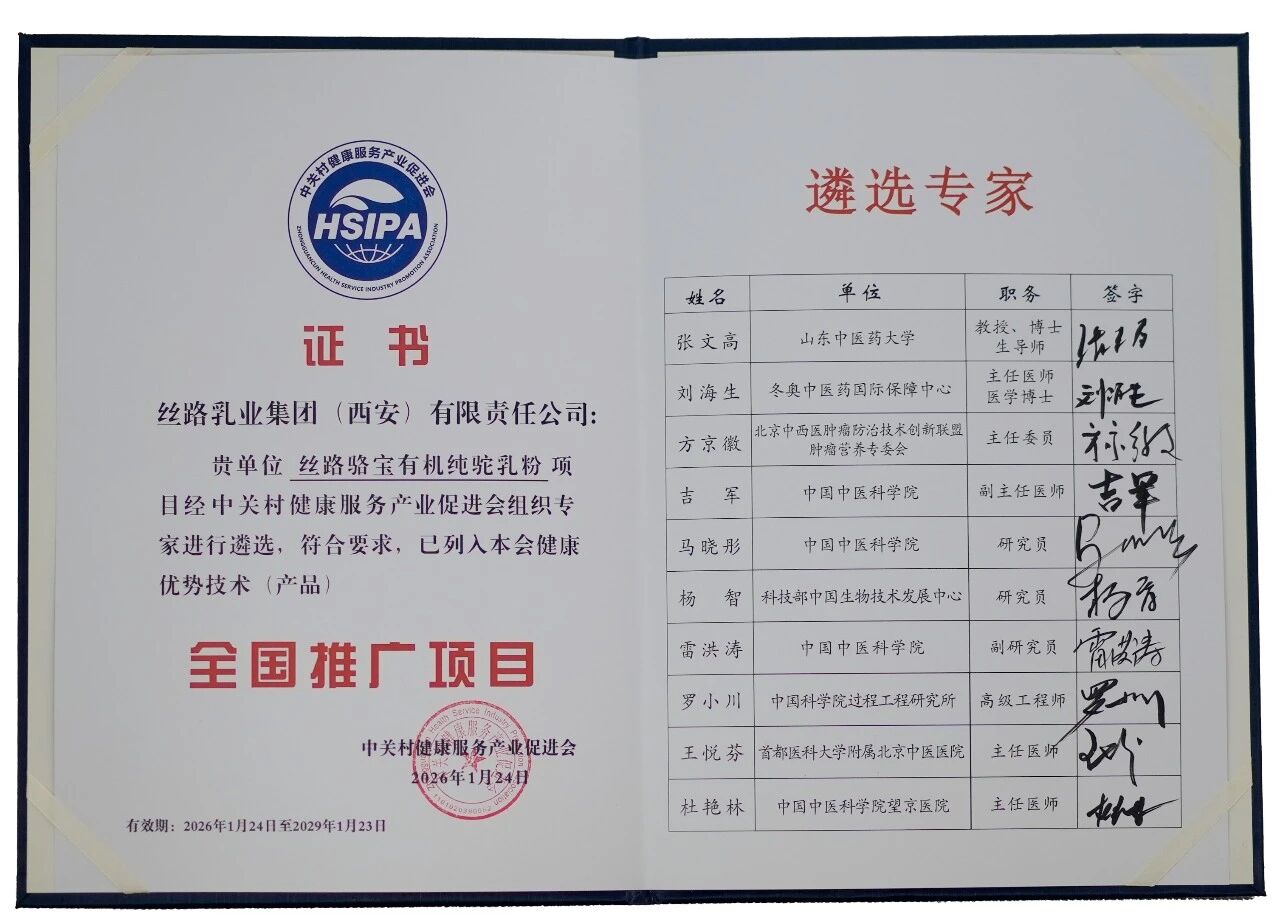 中关村健康服务产业促进会
HSIPA
ZHONGGUANCUN HEALTH SERVICE INDUSTRY PROMOTION ASSOCIATION
证书
丝路乳业集团（西安）有限责任公司:
贵单位 丝路骆宝有机纯驼乳粉 项
目经中关村健康服务产业促进会组织专
家进行遴选，符合要求，已列入本会健康
优势技术（产品）
全国推广项目
中关村健康服务产业促进会
2026年1月24日
有效期：2026年1月24日至2029年1月23日
遴选专家
姓名 单位 职务 签字
张文高 山东中医药大学 教授、博士
生导师
刘海生 冬奥中医药国际保障中心 主任医师
医学博士 刘海生
方京徽 北京中西医肿瘤防治技术创新联盟
肿瘤营养专委会 主任委员
吉军 中国中医科学院 副主任医师 吉军
马晓彤 中国中医科学院 研究员
杨智 科技部中国生物技术发展中心 研究员
雷洪涛 中国中医科学院 副研究员
罗小川 中国科学院过程工程研究所 高级工程师
王悦芬 首都医科大学附属北京中医医院 主任医师
杜艳林 中国中医科学院望京医院 主任医师